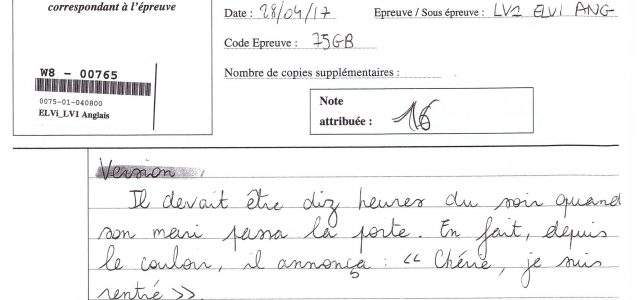 correspondant à l'épreuve
Date : 28/04/17 Epreuve / Sous épreuve : LV1 ELVI ANG
Code Epreuve : 75GB
W8 - 00765
Nombre de copies supplémentaires :
0075-01-040800
ELVi_LV1 Anglais
Note
attribuée : 16
Version
Il devait être diz heures du soir quand
son mari passa la porte. En fait, depuis
le couloir, il annonça : « Chérie, je suis
rentré ».